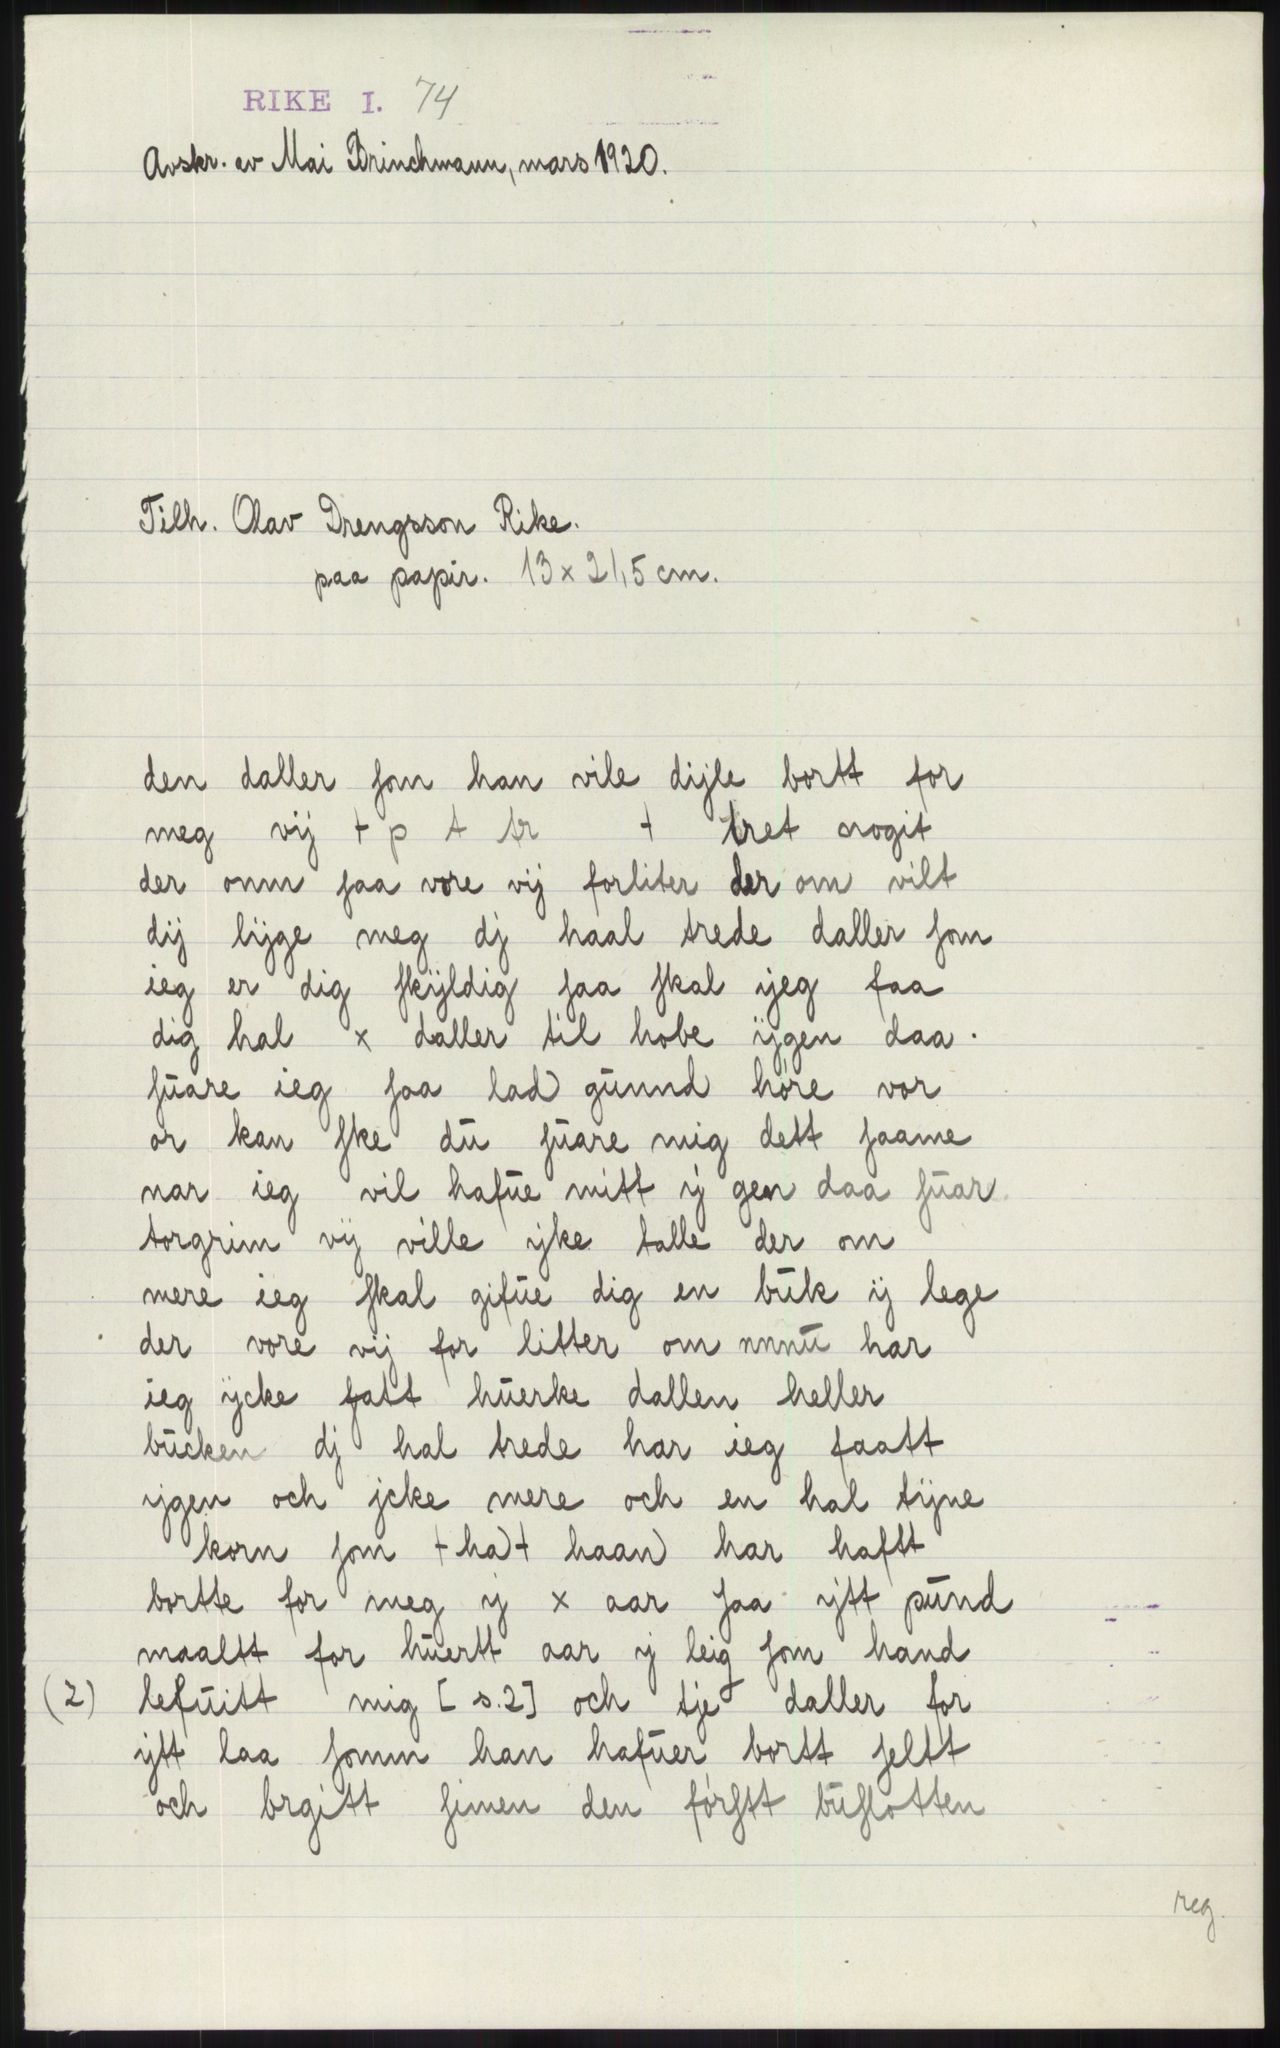 RIKE I. 74
Avskr. av Mai Brinchmann, mars 1920.
Tilh. Olav Drengsson Rike.
paa papir. 13 x 21,5 cm.
den daller som han vile dijle bortt for
meg vij + p t tr + tret nogit
der onm saa vore vij forliter der om vilt
dij lijge meg dj haal trede daller som
ieg er dig skÿldig saa skal yeg faa
dig hal x daller til hobe ijgen daa.
sūare ieg saa lad gūnnd høre vor
or kan ske dū sūare mig dett saame
nar ieg vil hafūe mitt ij gen daa sūar
torgrim vij ville ijke talle der om
mere ieg skal gifūe dig en būk ij lege
der vore vij for litter om nnnū har
ieg ÿcke fatt hūerke dallen heller
būcken dj hal trede har ieg faatt
ijgen och jcke mere och en hal tijne
korn som +ha)+ haan) har haftt
bortte for meg ij x aar saa ijtt pūnd
maaltt for hūertt aar ij leig som hand
(2) lefūitt mig [s.2] och tje daller for
ijtt laa somm han hafūer bortt seltt
och brgitt simen den førstt būslotten
reg.